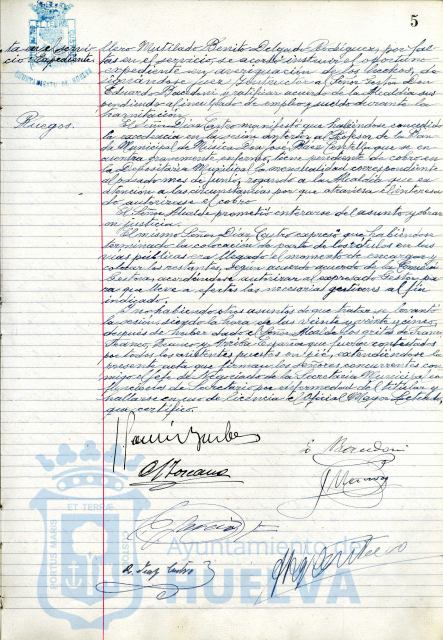 5
ta en el servi-
cio. Expediente.
llero Mutilado Benito Delgado Rodriguez, por fal-
tas en el servicio, se acordó instruir el oportuno
expediente en averiguacion de los hechos, de-
signándose Juez Instructor al Señor Gestor Don
Eduard y ratificar acuerdo de la Alcaldía sus-
pendiendo al inculpado de empleo y sueldo durante la
tramitación.
Ruegos.
El Señor Diaz Castro manifestó que habiéndose concedido
la excedencia en sesión anterior al Profesor de la Ban-
da Municipal de Música Don José que se en-
cuentra gravemente enfermo, tiene pendiente de cobro en
la Depositaria Municipal la mensualidad correspondiente
al pasado mes de Junio, rogando a la Alcaldía que su
atención a las circunstancias por que atraviesa el interesa-
do autorizase el cobro.
El Señor Alcalde prometió enterarse del asunto y obrar
en justicia.
El mismo Señor Diaz Castro expresó que habiendo
terminado la colocación de parte de los rótulos en las
vías públicas era llegado el momento de encargar y
colocar los restantes, según acuerdo de la Comisión
Gestora acordándose autorizar al expresado Gestor pa-
ra que lleve a efecto las necesarias gestiones al fin
indicado.
Y no habiendo otros asuntos de que tratar se levantó
la sesión siendo la hora de las veinte y veinte y cinco,
después de haber dado el Señor Alcalde los gritos de Franco,
Franco, Franco y Arriba España que fueron contestados
por todos los asistentes puestos en pié, extendiéndose la
presente acta que firman los señores concurrentes con-
migo el Jefe de Negociado de la Secretaría Municipal, en
funciones de Secretario por enfermedad del titular y
hallarse en uso de licencia el Oficial Mayor Letrado,
que certifico.
R. Diaz Castro
ET TERRAE
PORTUS MARIS
CUSTOS
Ayuntamiento de
HUELVA